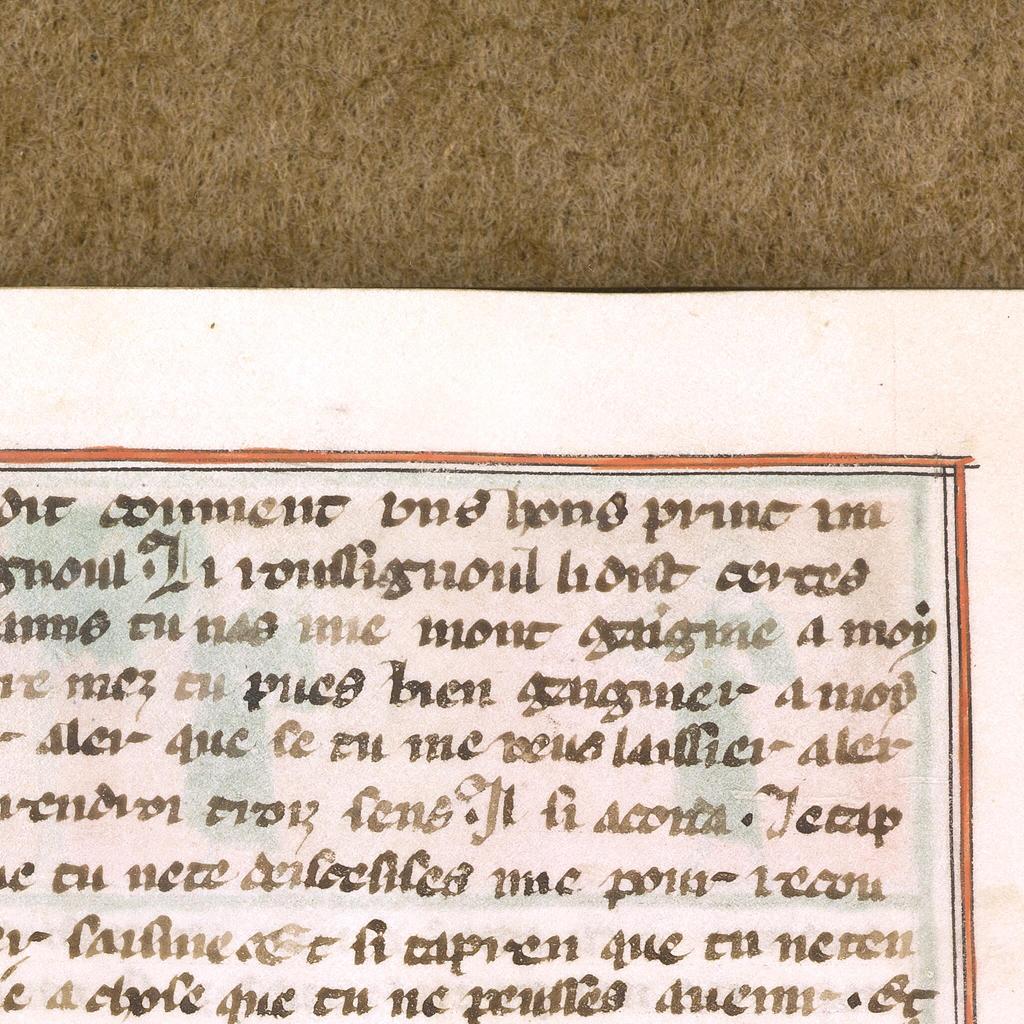 dit comment uns hons print un
gnoul. Li roussignoul li dist certes
tu nas mie mont gaignie a moy
mez tu pues bien gaignier a moy
aler que se tu me veus laissier aler
troiz sens. Il si acorda. Je tap
tu ne te desse mie pour recou
saisine. Et si tapren que tu ne ten
a chose que tu ne peusses auenir. Et